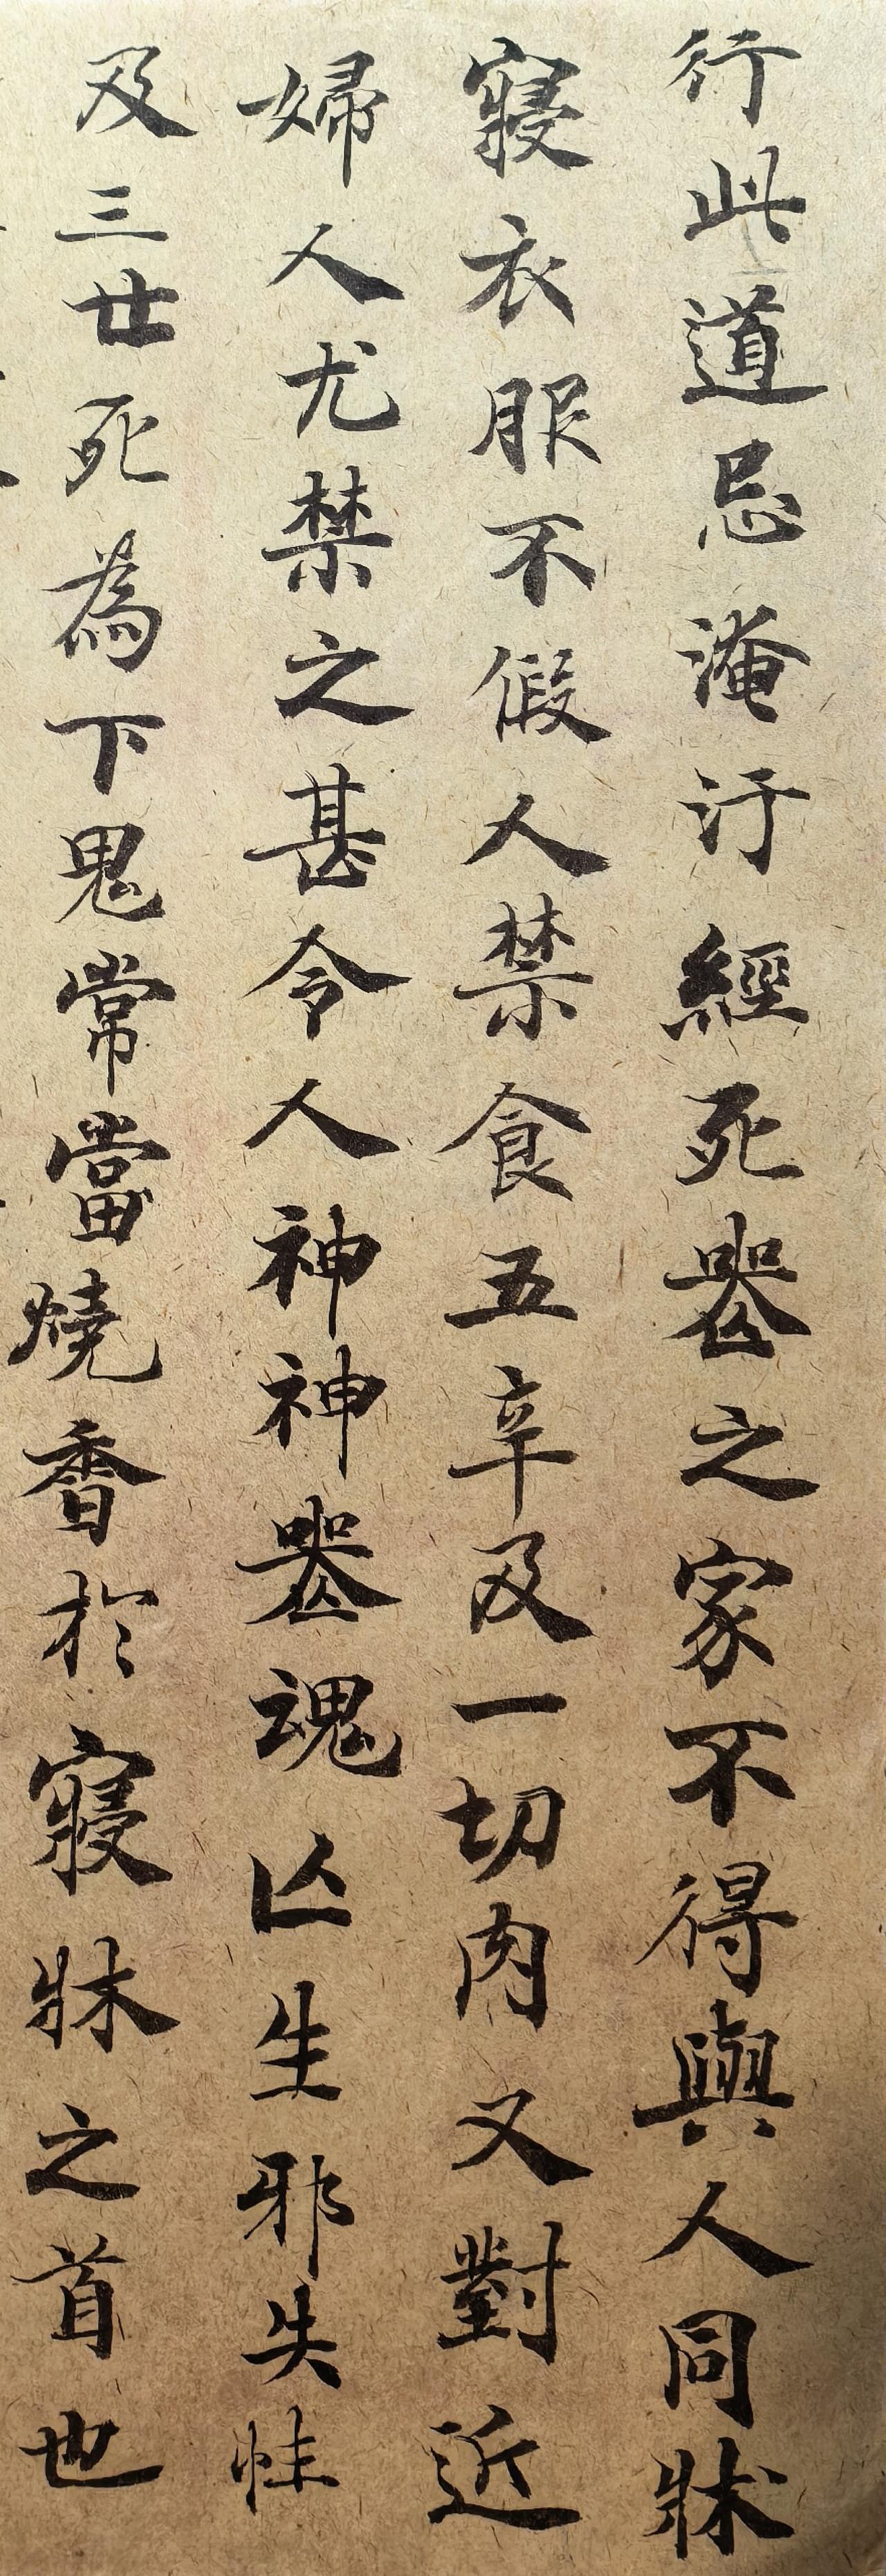 行此道忌淹汙經死喪之家不得與人同牀
寢衣服不假人禁食五辛及一切肉又對近
婦人尤禁之甚令人神神喪魂亡生邪失性
及三世死為下鬼常當燒香於寢牀之首也